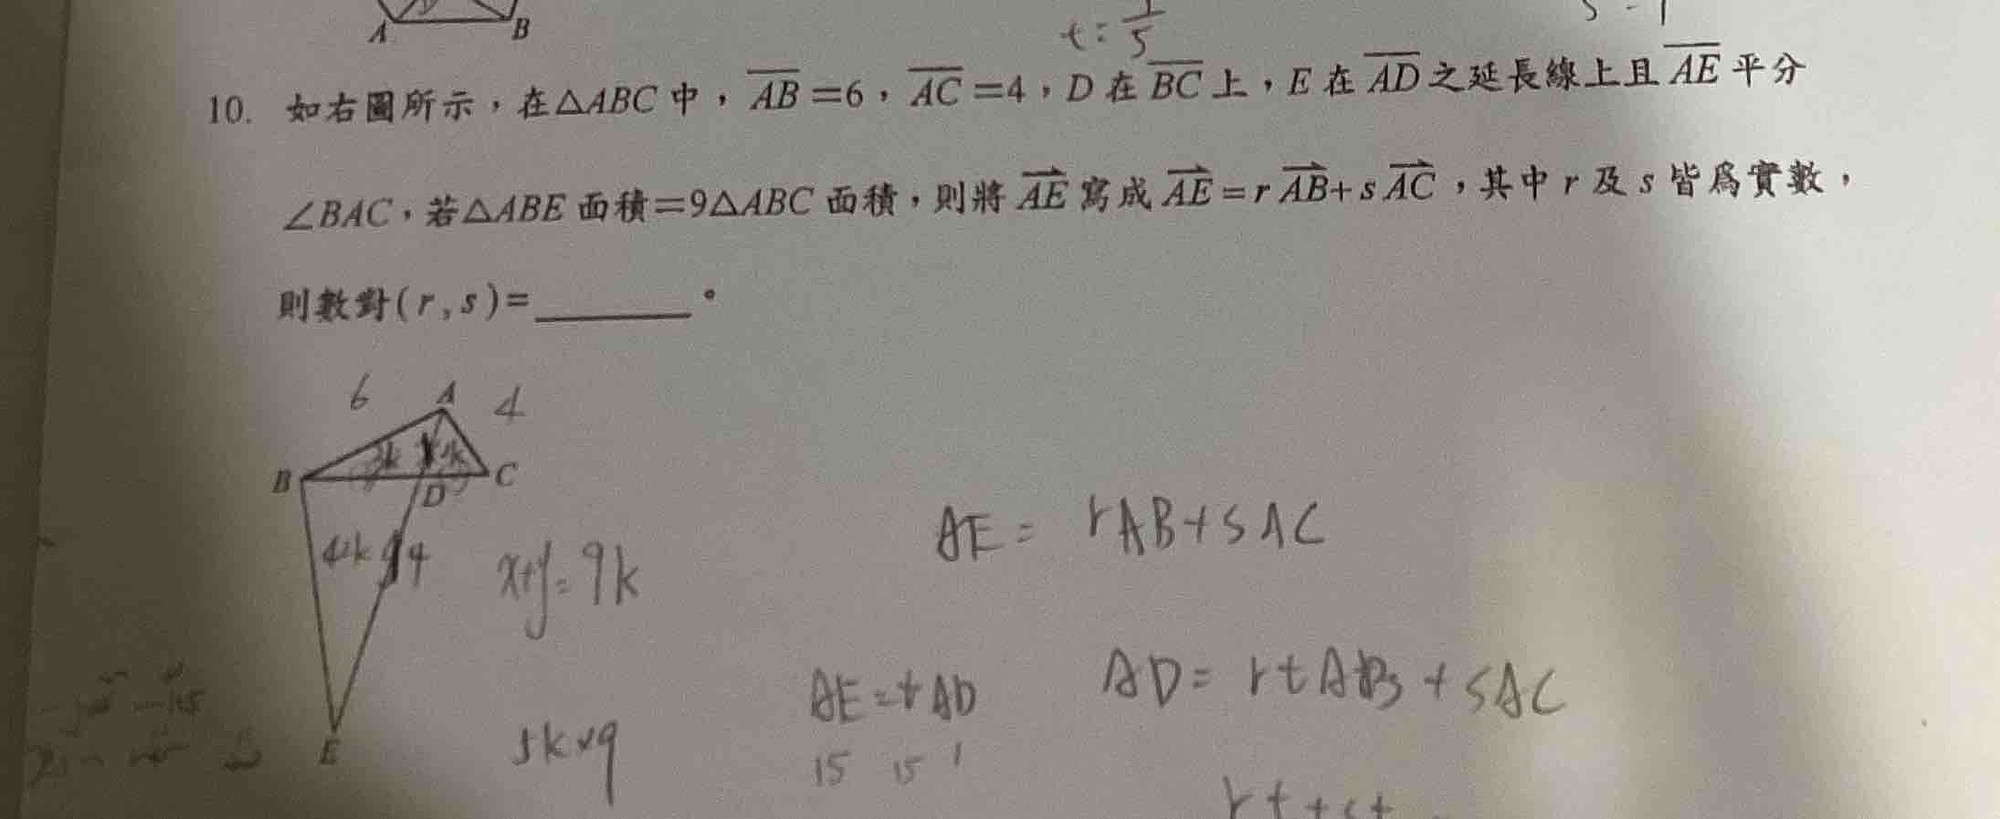 A B
t = 1/5
10. 如右圖所示，在△ABC中，AB=6，AC=4，D在BC上，E在AD之延長線上且AE平分
∠BAC，若△ABE面積=9△ABC面積，則將AE寫成AE=rAB+sAC，其中r及s皆為實數，
則數對(r,s)=______。
6 A 4
B D C
x+y=9k
E
5k×9
AE= rAB+sAC
AE=tAD
15 15 1
AD= rtAB+sAC